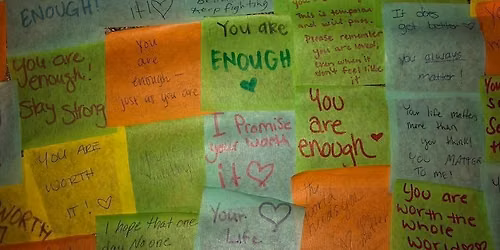 ENOUGH!
it! ♡
You are
enough!
Stay Strong
You
are
enough
just as you are
You are
ENOUGH
This is temporary
and will pass.
Please remember
you are loved,
even when it
don't feel like
it
It does
get better
you always
matter!
YOU ARE
WORTH
IT! ♡
I Promise
your worth
it ♡
You
are
enough ♥
Your life matters
more than
you think!
YOU MATTER
TO me!
WORTH
I hope that one
day No one
Your
Life
world
You are
worth the
whole